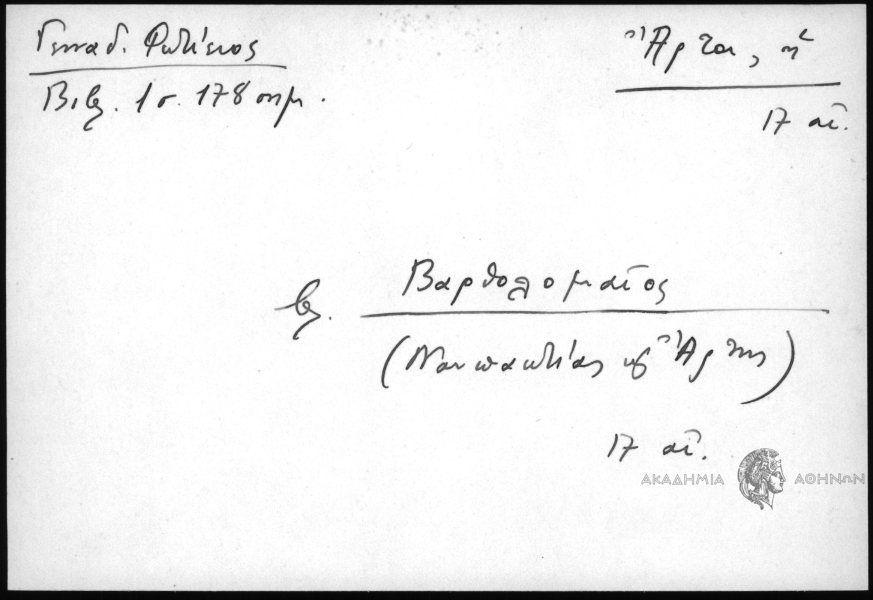 Γενναδ. Φωτίειος
Βιβ. 1 σ. 178 σημ.
Ἄρτα, ἡ
17 αἰ.
βλ. Βαρθολομαῖος
(Ναυπακτίας καὶ Ἄρτης)
17 αἰ.
ΑΚΑΔΗΜΙΑ ΑΘΗΝΩΝ